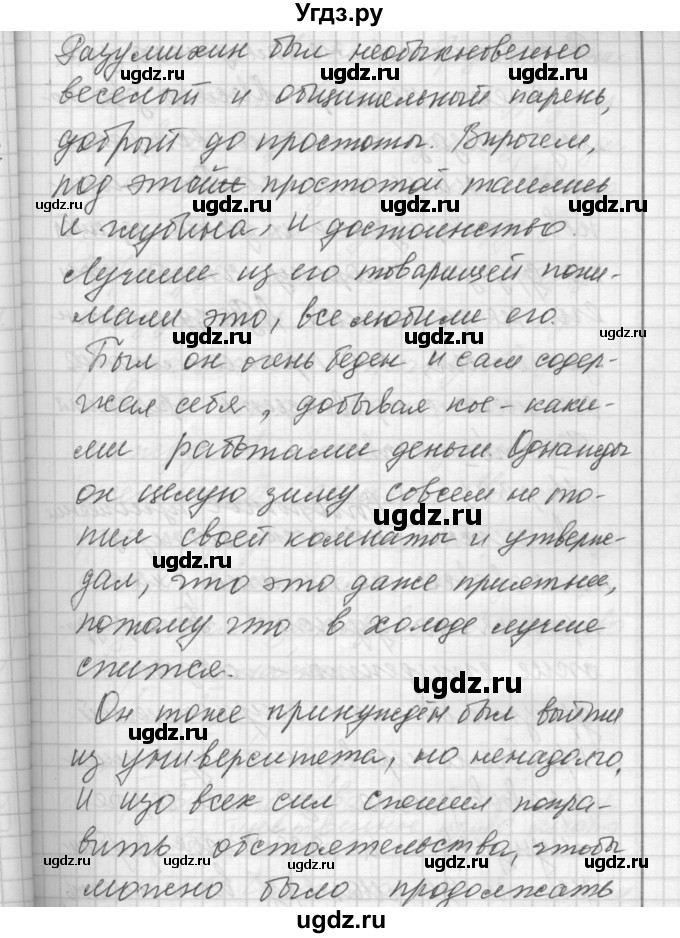 Угдз.ру
Разумихин был необыкновенно
ugdz.ru ugdz.ru ugdz.ru
веселый и общительный парень,
добрый до простоты. Впрочем,
под этой простотой таились
ugdz.ru ugdz.ru ugdz.ru
и глубина, и достоинство.
Лучшие из его товарищей пони-
мали это, все любили его.
ugdz.ru ugdz.ru
Был он очень беден и сам содер-
жал себя, добывая кое-каки-
ми работами деньги. Однажды
он целую зиму совсем не то-
ugdz.ru
пил своей комнаты и утверж-
ugdz.ru
дал, что это даже приятнее,
потому что в холоде лучше
спится.
ugdz.ru
Он тоже принуждён был выйти
ugdz.ru
из университета, но ненадолго,
И изо всех сил спешил попра-
вить обстоятельства, чтобы
ugdz.ru ugdz.ru ugdz.ru
можно было продолжать
ugdz.ru